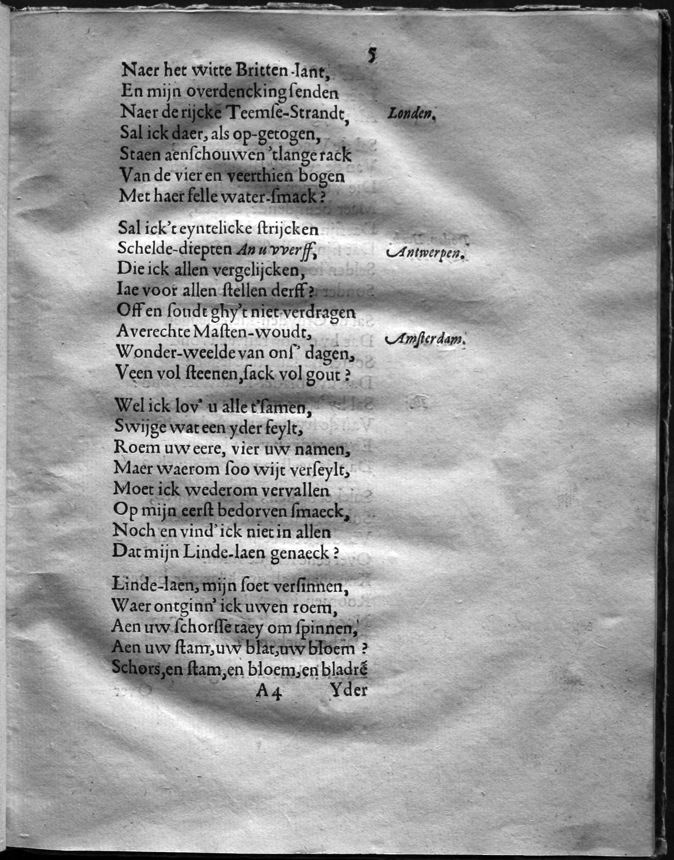 5
Naer het witte Britten-lant,
En mijn overdencking ſenden
Naer de rijcke Teemſe-Strandt, Londen.
Sal ick daer, als op-getogen,
Staen aenſchouwen 'tlange rack
Van de vier en veerthien bogen
Met haer felle water-ſmack?
Sal ick't eyntelicke ſtrijcken
Schelde-diepten An u vverff, Antwerpen.
Die ick allen vergelijcken,
Iae voor allen ſtellen derff?
Off en ſoudt ghy't niet verdragen
Averechte Maſten-woudt, Amſterdam.
Wonder-weelde van onſ' dagen,
Veen vol ſteenen, ſack vol gout?
Wel ick lov' u alle t'ſamen,
Swijge wat een yder feylt,
Roem uw eere, vier uw namen,
Maer waerom ſoo wijt verſeylt,
Moet ick wederom vervallen
Op mijn eerſt bedorven ſmaeck,
Noch en vind' ick niet in allen
Dat mijn Linde-laen genaeck?
Linde-laen, mijn ſoet verſinnen,
Waer ontginn' ick uwen roem,
Aen uw ſchorſſe taey om ſpinnen,
Aen uw ſtam, uw blat, uw bloem?
Schors, en ſtam, en bloem, en bladrē
A4 Yder